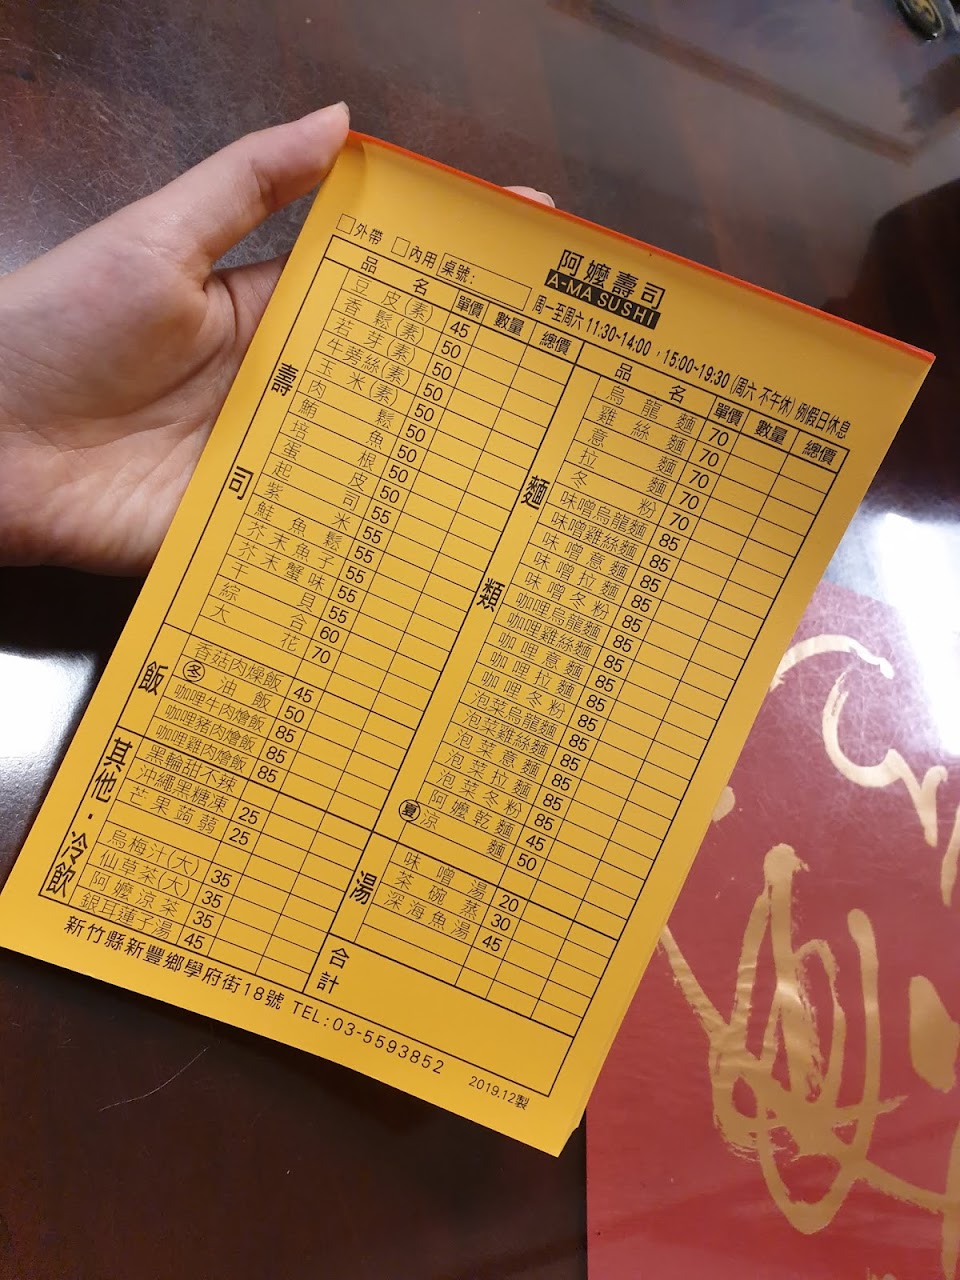 □外帶 □內用 桌號:
阿嬤壽司
A-MA SUSHI
周一至周六 11:30~14:00 , 15:00~19:30 (周六 不午休) 例假日休息
品名 單價 數量 總價
壽司
豆皮(素) 45
香鬆(素) 50
若芽(素) 50
牛蒡絲(素) 50
玉米(素) 50
肉鬆 50
鮪魚 50
培根 50
蛋皮 50
起司 55
紫米 55
鮭魚鬆 55
芥末魚子 55
芥末蟹味 55
干貝 55
綜合 60
大花 70
飯
香菇肉燥飯 45
冬 油飯 50
咖哩牛肉燴飯 85
咖哩豬肉燴飯 85
咖哩雞肉燴飯 85
其他・冷飲
黑輪甜不辣
沖繩黑糖凍 25
芒果蒟蒻 25
烏梅汁(大) 35
仙草茶(大) 35
阿嬤涼茶 35
銀耳蓮子湯 45
品名 單價 數量 總價
麵類
烏龍麵 70
雞絲麵 70
意麵 70
拉麵 70
冬粉 70
味噌烏龍麵 85
味噌雞絲麵 85
味噌意麵 85
味噌拉麵 85
味噌冬粉 85
咖哩烏龍麵 85
咖哩雞絲麵 85
咖哩意麵 85
咖哩拉麵 85
咖哩冬粉 85
泡菜烏龍麵 85
泡菜雞絲麵 85
泡菜意麵 85
泡菜拉麵 85
泡菜冬粉 85
阿嬤乾麵 45
夏 涼麵 50
湯
味噌湯 20
茶碗蒸 30
深海魚湯 45
合計
新竹縣新豐鄉學府街18號 TEL:03-5593852
2019.12製